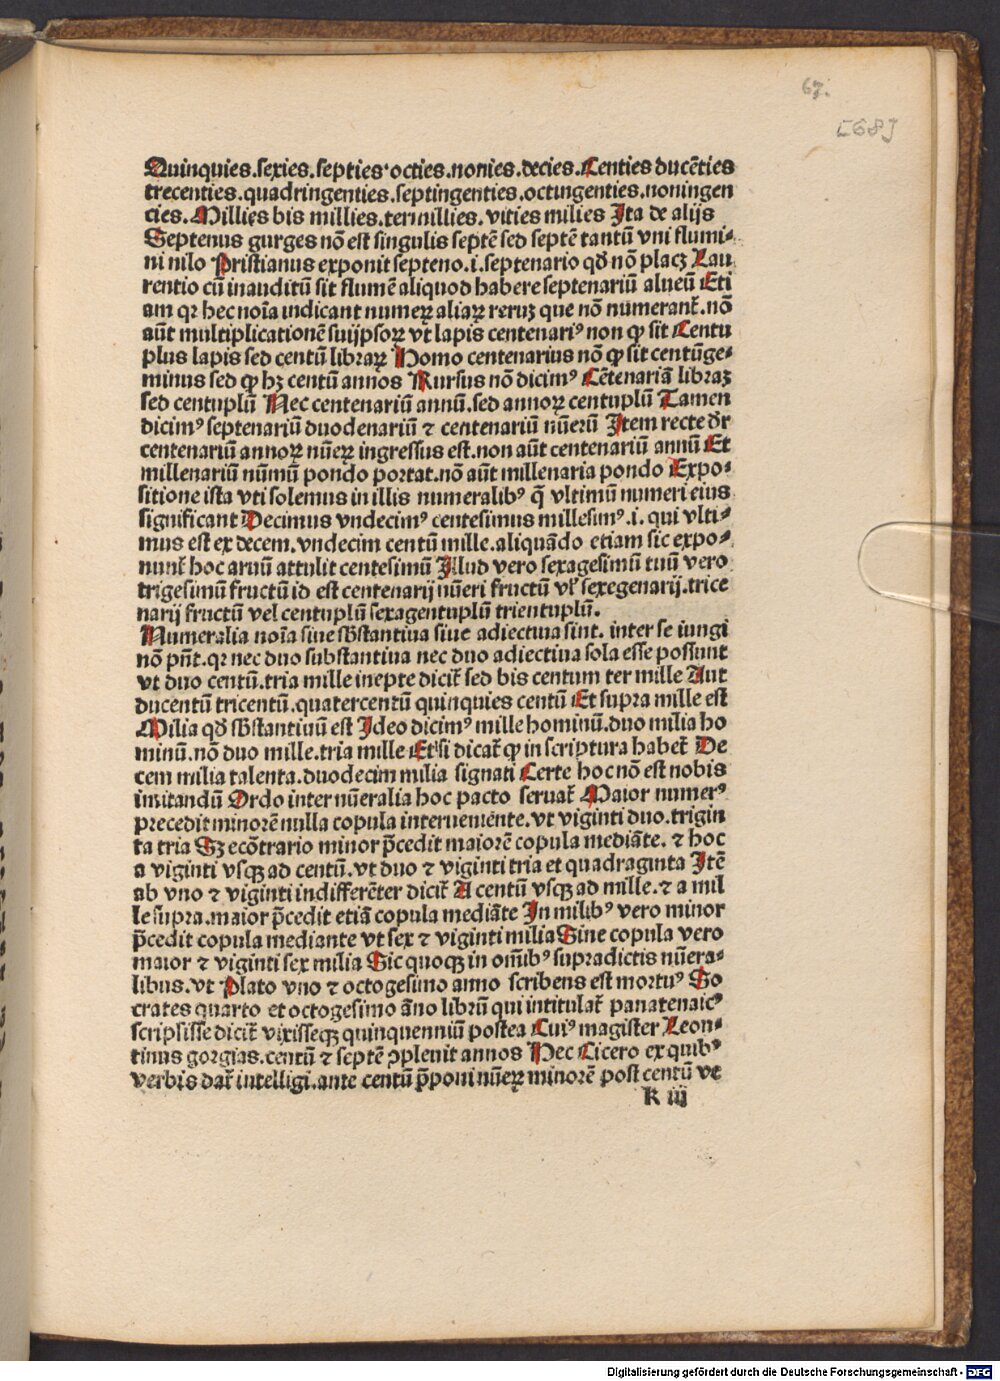 67.
[68]
Quinquies.sexies.septies.octies.nonies.decies.Centies ducẽties
trecenties.quadringenties.septingenties.octingenties.noningen
cies.Millies bis millies.ter millies.vities milies Ita de alijs
Septenus gurges nõ est singulis septẽ sed septẽ tantũ vni flumi⸗
ni nilo Pristianus exponit septeno.i.septenario qð nõ placꝫ Lau
rentio cũ inauditũ sit flumẽ aliquod habere septenariũ alueũ Eti
am qꝛ hec noĩa indicant numeꝝ aliaꝝ reruꝫ que nõ numerant᷑.nõ
aũt multiplicationẽ suijpsoꝝ vt lapis centenariꝰ non ꝙ sit Centu
plus lapis sed centũ libraꝝ Homo centenarius nõ ꝙ sit centũge⸗
minus sed ꝙ hꝫ centũ annos Rursus nõ dicimꝰ Cẽtenariã libraꝫ
sed centuplũ Nec centenariũ annũ.sed annoꝝ centuplũ Tamen
dicimꝰ septenariũ duodenariũ ⁊ centenariũ nũerũ Item recte dr̃
centenariũ annoꝝ nũeꝝ ingressus est.non aũt centenariũ annũ Et
millenariũ nũmũ pondo portat.nõ aũt millenaria pondo Expo⸗
sitione ista vti solemus in illis numeralibꝰ q̃ vltimũ numeri eius
significant Decimus vndecimꝰ centesimus millesimꝰ.i. qui vlti⸗
mus est ex decem.vndecim centũ mille.aliquãdo etiam sic expo⸗
nunt᷑ hoc aruũ attulit centesimũ Illud vero sexagesimũ tuũ vero
trigesimũ fructũ id est centenarij nũeri fructũ vl᷑ sexegenarij.trice
narij fructũ vel centuplũ sexagentuplũ trientuplũ.
Numeralia noĩa siue sb̃stantiua siue adiectiua sint. inter se iungi
nõ pñt.qꝛ nec duo substantiua nec duo adiectiua sola esse possunt
vt duo centũ.tria mille inepte dicit᷑ sed bis centum ter mille Aut
ducentũ tricentũ.quatercentũ quinquies centũ Et supra mille est
Milia qð sb̃stantiuũ est Ideo dicimꝰ mille hominũ.duo milia ho
minũ.nõ duo mille.tria mille Etsi dicat᷑ ꝙ in scriptura habet᷑ De
cem milia talenta.duodecim milia signati Certe hoc nõ est nobis
imitandũ Ordo inter nũeralia hoc pacto seruat᷑ Maior numerꝰ
precedit minorẽ nulla copula interueniente.vt viginti duo.trigin
ta tria Sꝫ ecõtrario minor p̃cedit maiorẽ copula mediãte. ⁊ hoc
a viginti vsqꝫ ad centũ.vt duo ⁊ viginti tria et quadraginta Itẽ
ab vno ⁊ viginti indifferẽter dicit᷑ A centũ vsqꝫ ad mille.⁊ a mil
le supra.maior p̃cedit etiã copula mediãte In milibꝰ vero minor
p̃cedit copula mediante vt sex ⁊ viginti milia Sine copula vero
maior ⁊ viginti sex milia Sic quoqꝫ in om̃ibꝰ supradictis nũera⸗
libus.vt Plato vno ⁊ octogesimo anno scribens est mortuꝰ So
crates quarto et octogesimo ãno librũ qui intitulat᷑ panatenaicꝰ
scripsisse dicit᷑ vixisseqꝫ quinquenniũ postea Cuiꝰ magister Leon⸗
tinus gorgias.centũ ⁊ septẽ ꝯpleuit annos Nec Cicero ex quibꝰ
verbis dat᷑ intelligi.ante centũ p̃poni nũeꝝ minorẽ post centũ vt
K iij
Digitalisierung gefördert durch die Deutsche Forschungsgemeinschaft - DFG